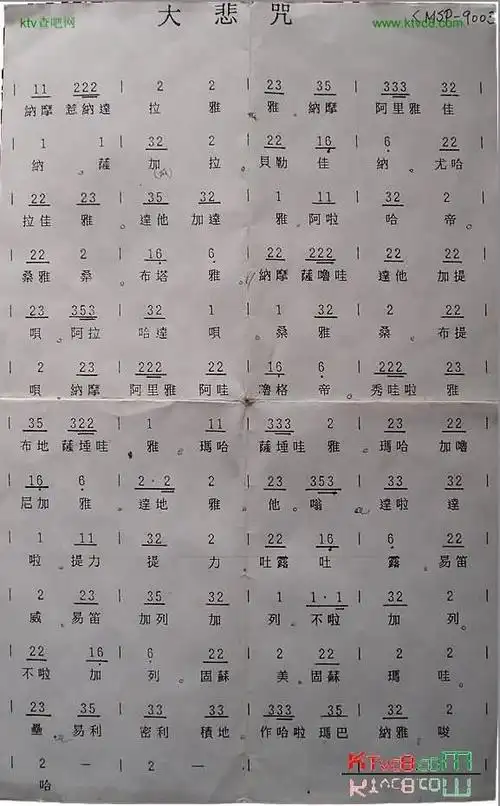 ktv查吧网
大悲咒
www.ktvc8.com
CMSP-9003
| 11 222 | 2 2 | 23 35 | 333 32 |
納摩 惹納達 拉 雅 。 雅 納摩 阿里雅 佳
| 1 1 | 32 2 | 22 16 | 6 22 |
納 。 薩 加 拉 。 貝勒 佳 納 。 尤哈
| 22 23 | 35 32 | 1 11 | 32 2 |
拉佳 雅 。 達他 加達 雅 。 阿啦 哈 帝 。
| 22 2 | 16 6 | 22 222 | 22 22 |
桑雅 桑 。 布塔 雅 。 納摩 薩嚕哇 達他 加提
| 23 353 | 32 1 | 1 32 | 2 22 |
唄 。 阿拉 哈達 唄 。 桑 雅 桑 。 布提
| 2 23 | 222 22 | 16 6 | 222 23 |
唄 納摩 阿里雅 阿哇 嚕格 帝 。 秀哇啦 雅
| 35 322 | 1 11 | 333 2 | 23 22 |
布地 薩埵哇 雅 。 瑪哈 薩埵哇 雅 。 瑪哈 加嚕
| 16 6 | 2·2 2 | 23 353 | 33 32 |
尼加 雅 。 達地 雅 。 他 。 嗡 達啦 達
| 1 11 | 32 2 | 22 16 | 6 22 |
啦 。 提力 提 力 。 吐露 吐 露 。 易笛
| 2 23 | 35 32 | 1 1·1 | 32 2 |
威 。 易笛 加列 加 列 。 不啦 加 列 。
| 22 16 | 6 22 | 2 22 | 2 2 |
不啦 加 列 。 固蘇 美 。 固蘇 瑪 哇 。
| 23 35 | 33 33 | 333 35 | 22 2 |
壘 。 易利 密利 積地 。 作哈啦 瑪巴 納雅 唆
| 2 — | 2 — |
哈 。
KTvc8.com